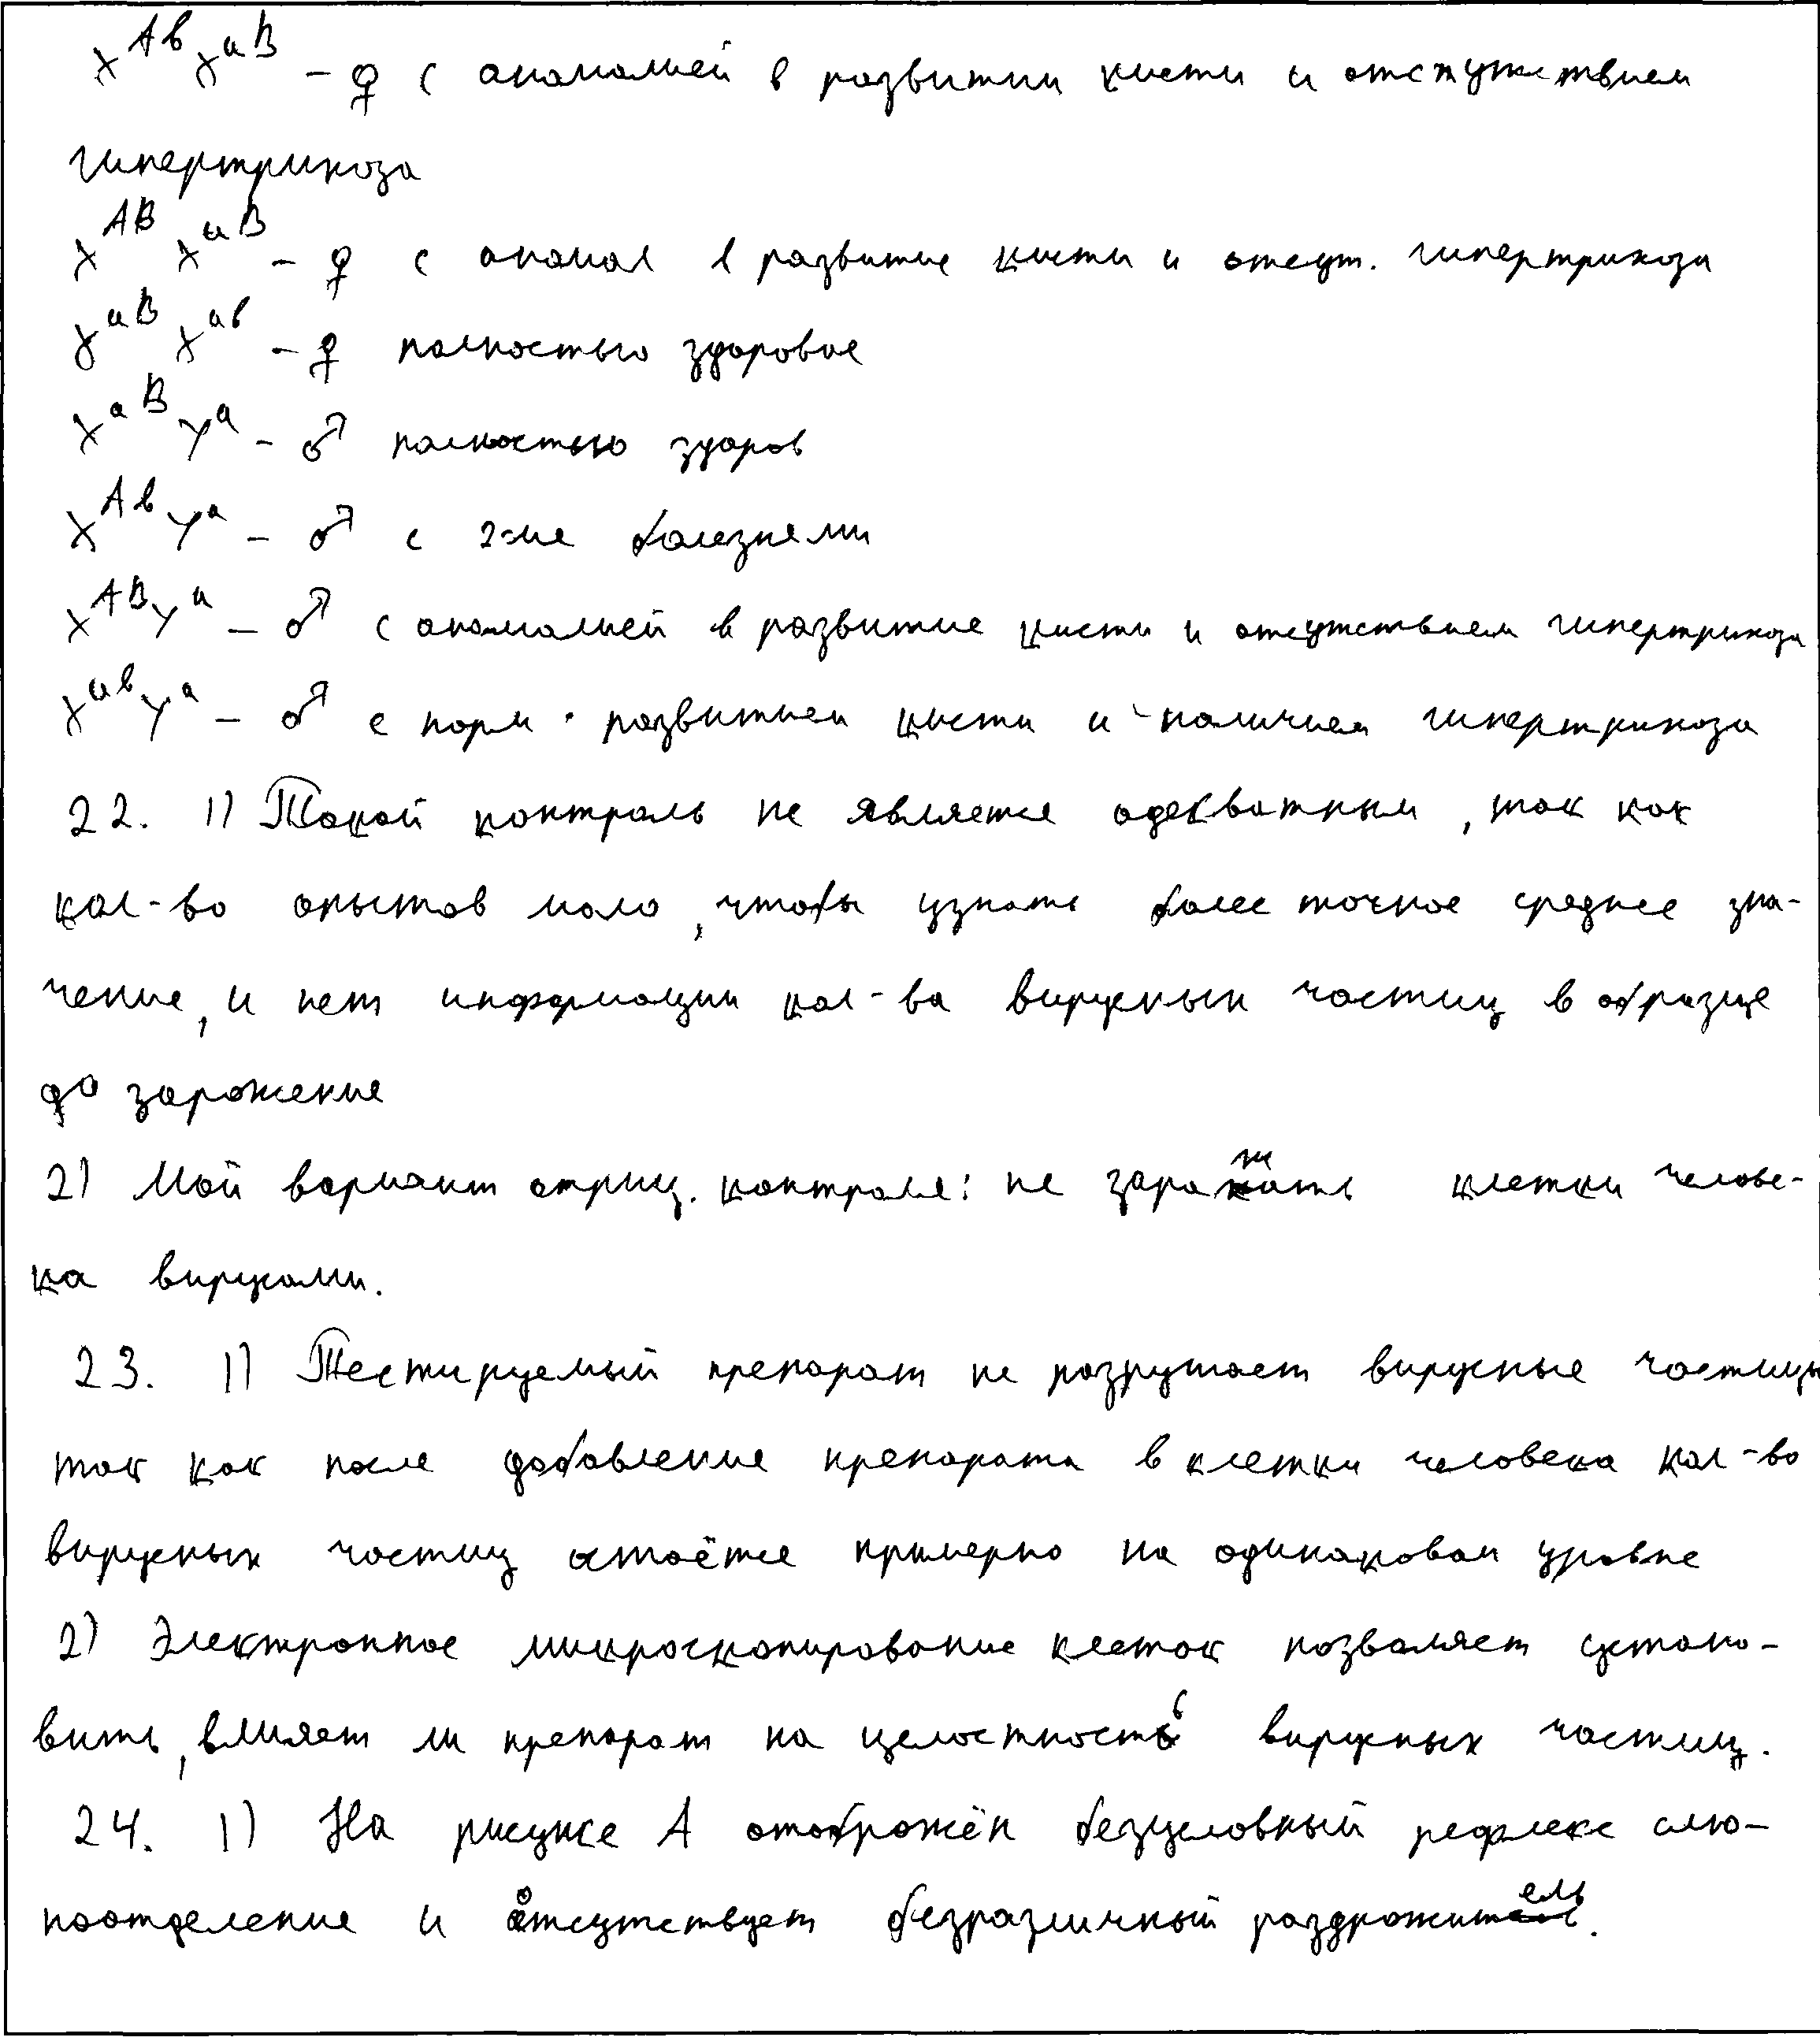 X^Ab X^aB – ♀ с аномалией в развитии кисти и отсутствием
гипертрихоза
X^AB X^aB – ♀ с аномал в развитие кисти и отсут. гипертрихоза
X^aB X^ab – ♀ полностью здоровое
X^aB Y^a – ♂ полностью здоров
X^Ab Y^a – ♂ с 2-мя болезнями
X^AB Y^a – ♂ с аномалией в развитие кисти и отсутствием гипертрихоза
X^ab Y^a – ♂ с норм. развитием кисти и наличием гипертрихоза
22. 1) Такой контроль не является адекватным, так как
кол-во опытов мало, чтобы узнать более точное среднее зна-
чение, и нет информации кол-ва вирусных частиц в образце
до заражение
2) Мой вариант отриц. контроля: не заражать клетки челове-
ка вирусами.
23. 1) Тестируемый препарат не разрушает вирусные частицы
так как после добавление препарата в клетки человека кол-во
вирусных частиц остаётся примерно на одинаковом уровне
2) Электронное микроскопирование клеток позволяет устано-
вить, влияет ли препарат на целостность вирусных частиц.
24. 1) На рисунке А отображён безусловный рефлекс слю-
ноотделение и отсутствует безразличный раздражитель.